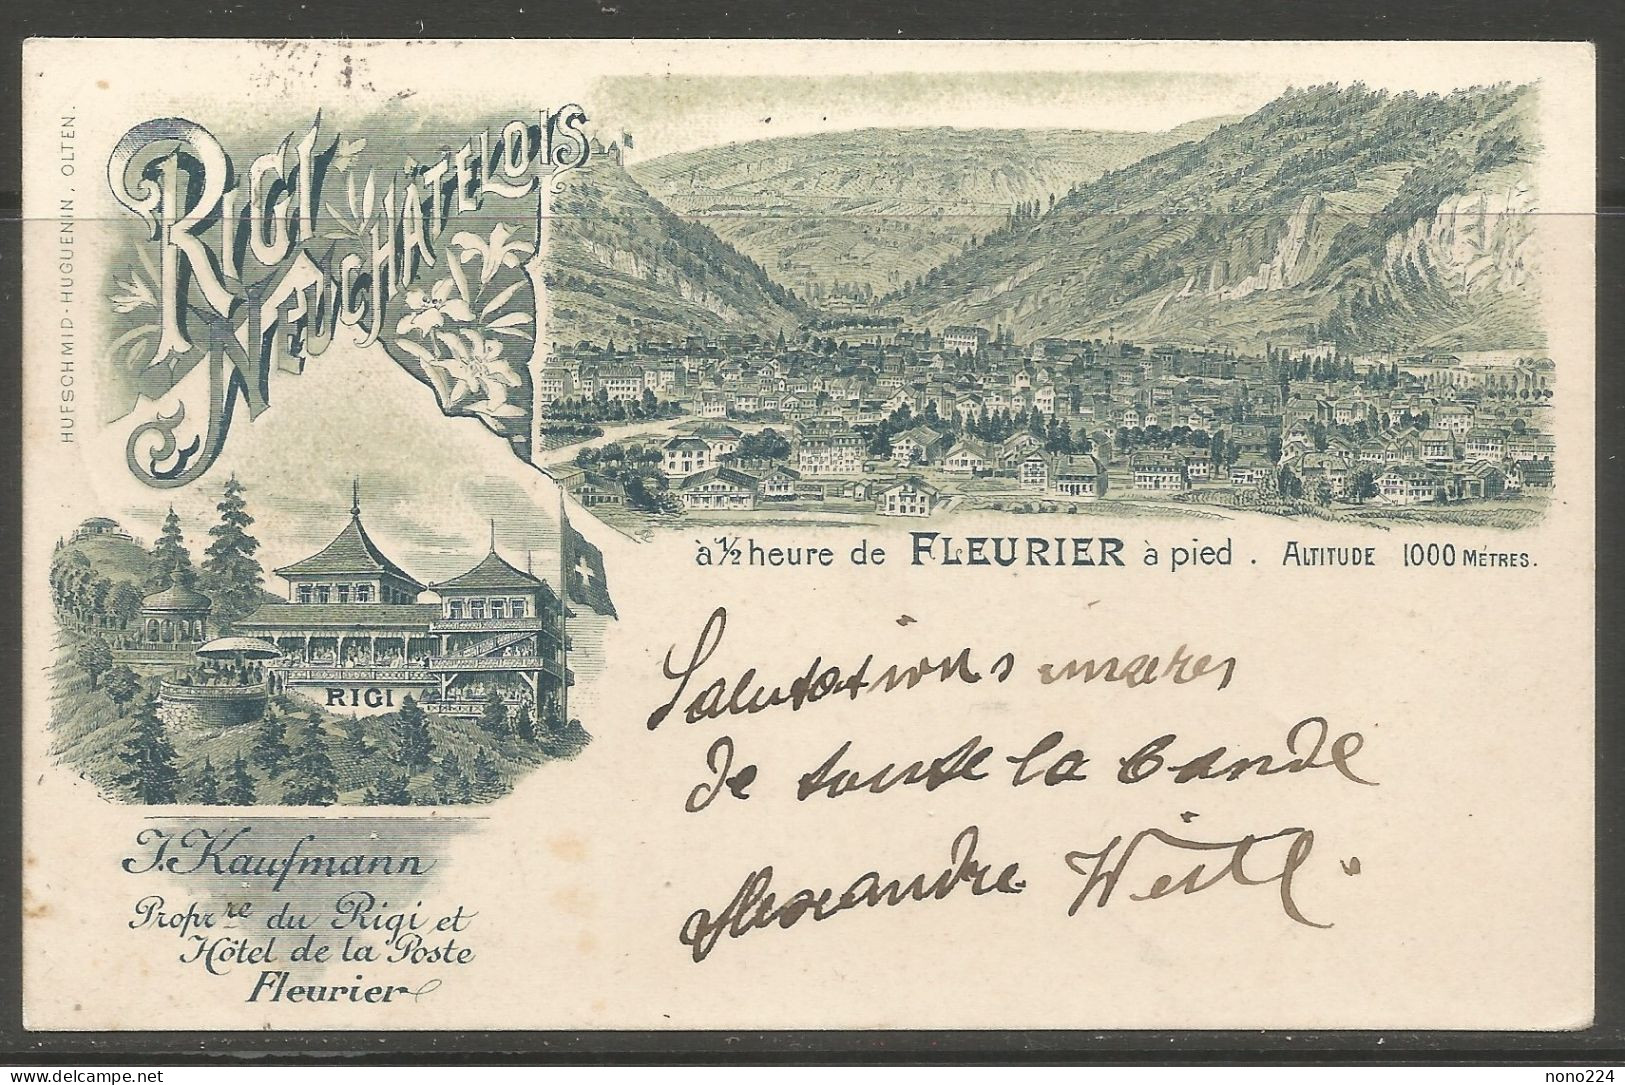 HUFSCHMID-HUGUENIN, OLTEN.
RIGI
NEUCHÂTELOIS
à ½ heure de FLEURIER à pied. ALTITUDE 1000 MÈTRES.
RIGI
J. Kaufmann
Propr.re du Rigi et
Hôtel de la Poste
Fleurier
Salutations
de toute la bande
Alexandre
delcampe.net
nono224